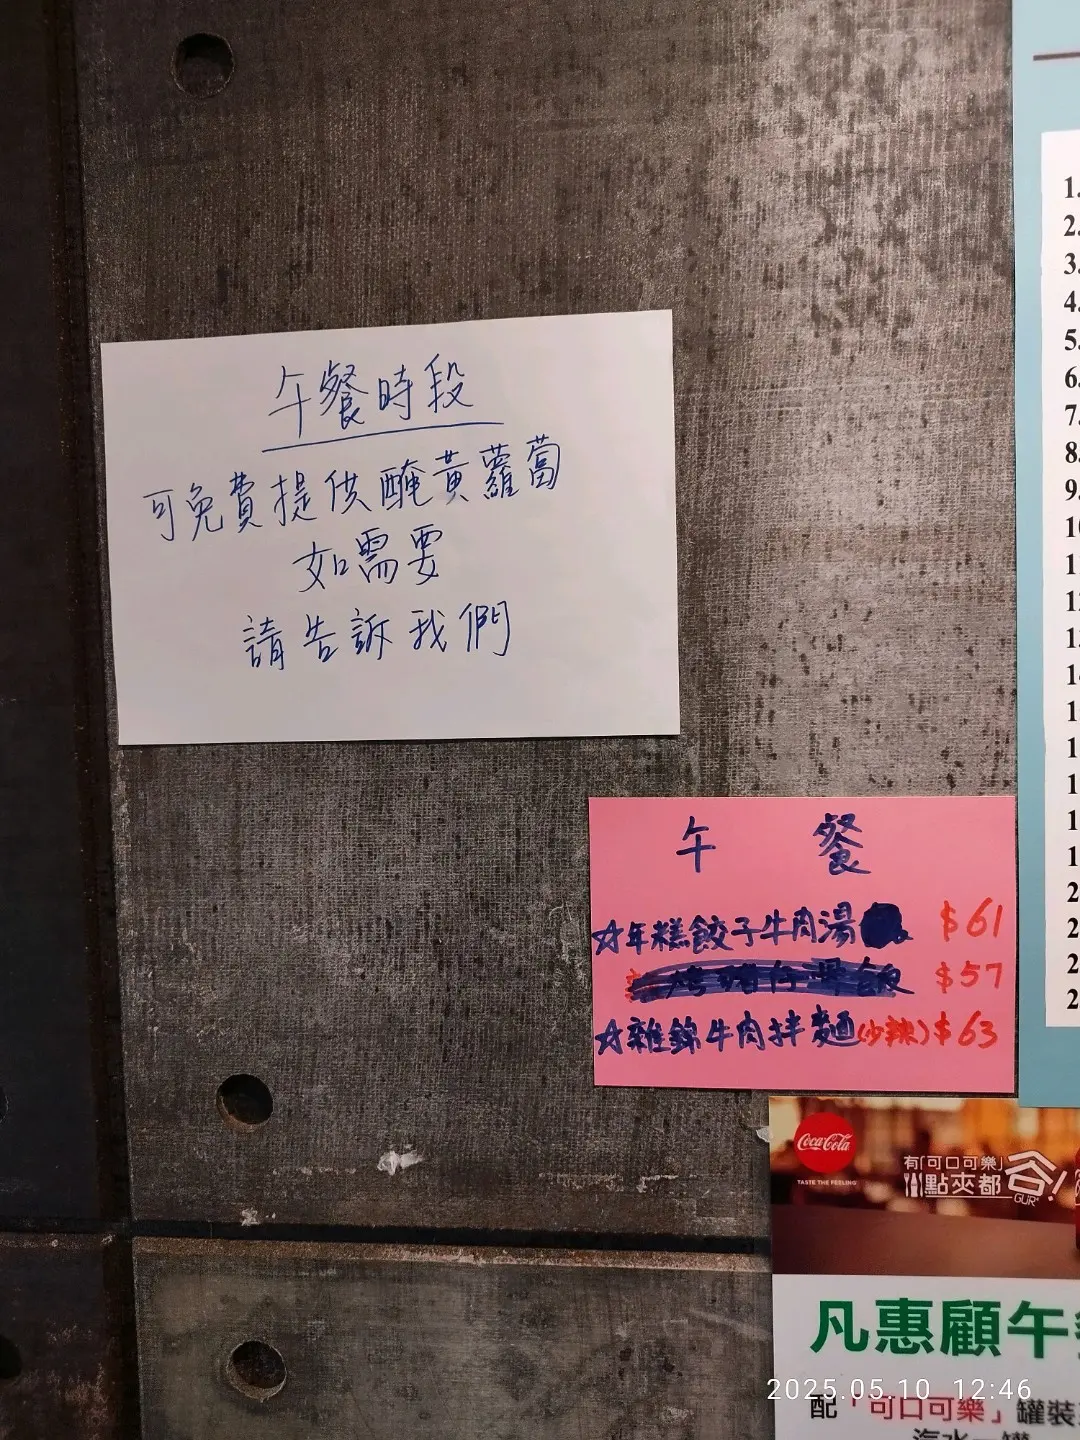 午餐時段
可免費提供醃黃蘿蔔
如需要
請告訴我們
午 餐
☆年糕餃子牛肉湯 $61
$57
☆雜錦牛肉拌麵(少辣) $63
1.
2.
3.
4.
5.
6.
7.
8.
9.
Coca-Cola
TASTE THE FEELING
有「可口可樂」
點夾都 GUR!
凡惠顧午
配「可口可樂」罐裝
汽水一罐
2025.05.10 12:46